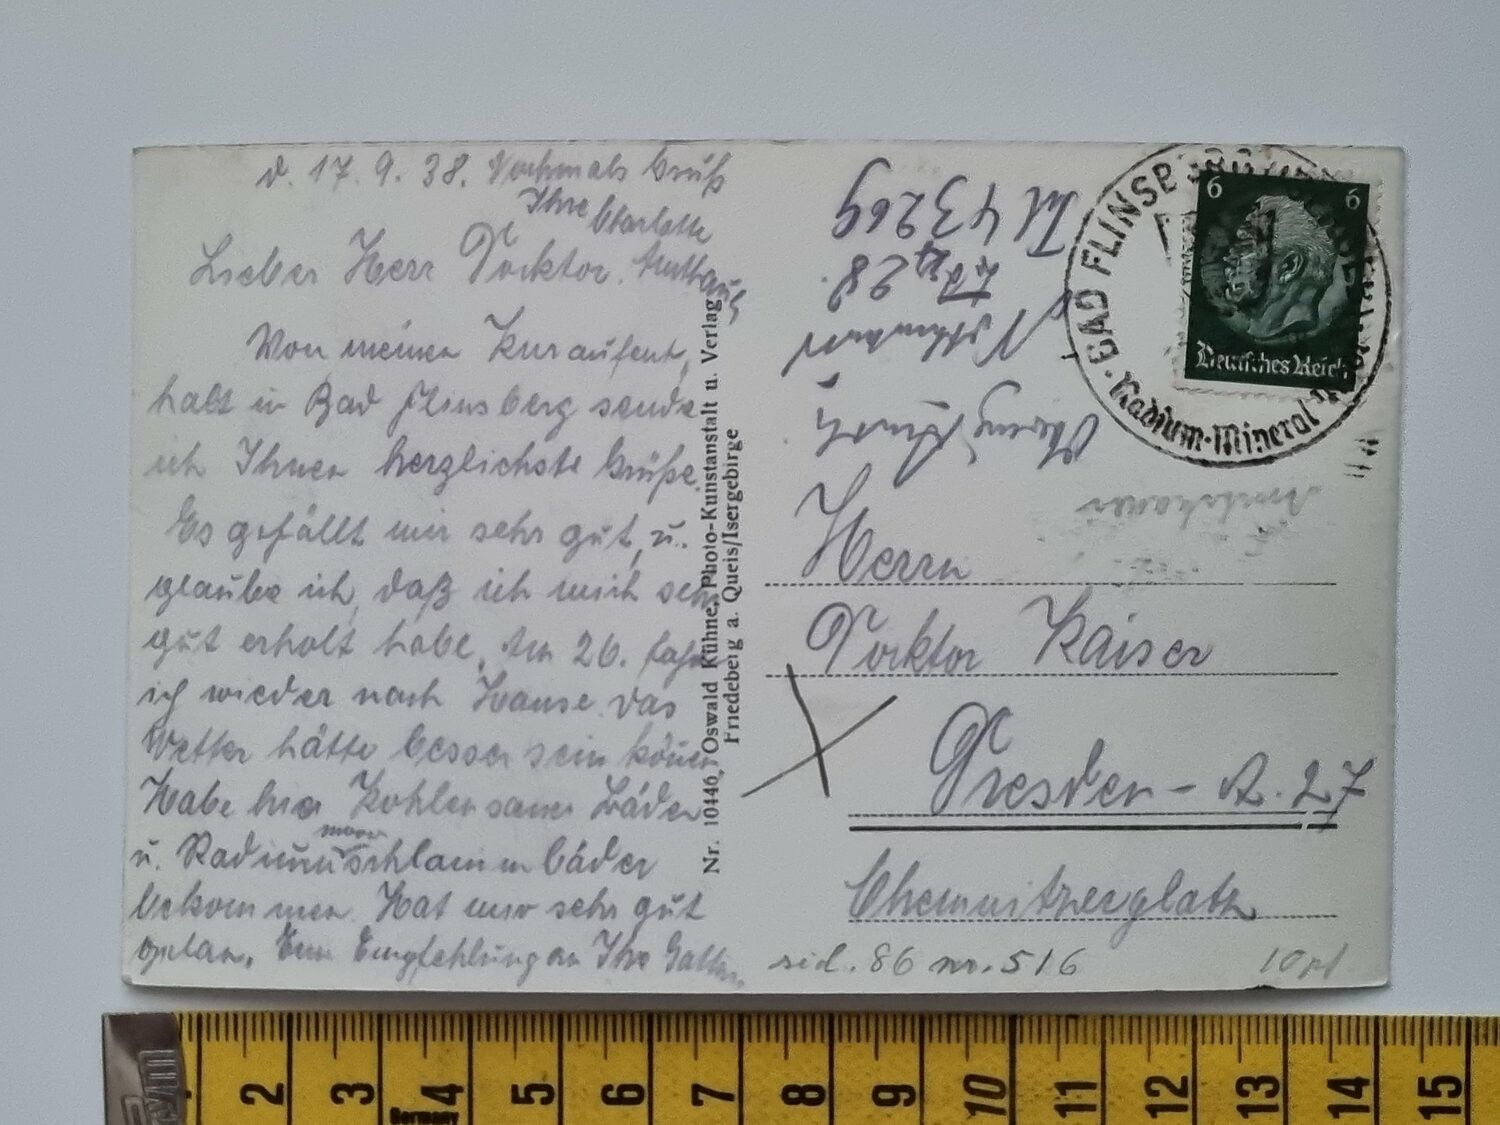 d. 17. 9. 38. Nochmals Gruß
Ihre Charlotte
Lieber Herr Docktor.
Von meinen Kuraufent,
halt in Bad Flinsberg sende
ich Ihnen herzlichste Grüße.
Es gefällt mir sehr gut, u.
glaube ich, daß ich mich sehr
gut erholt habe. Am 26. fahre
ich wieder nach Hause. Das
Wetter hätte besser sein können
Habe hier Kohlensaure Bäder
moor
u. Radiumschlammbäder
bekommen. Hat mir sehr gut
getan. Eine Empfehlung an Ihre Gattin.
Nr. 10446, Oswald Kühne, Photo-Kunstanstalt u. Verlag
Friedeberg a. Queis/Isergebirge
Tel 43269
28.
BAD FLINSB
Radium-Mineral
6 6
Deutsches Reich
Herrn
Docktor Kaiser
Dresden - A. 27
Chemnitzerplatz
sid. 86 nr. 516
10
Germany
2 3 4 5 6 7 8 9 10 11 12 13 14 15